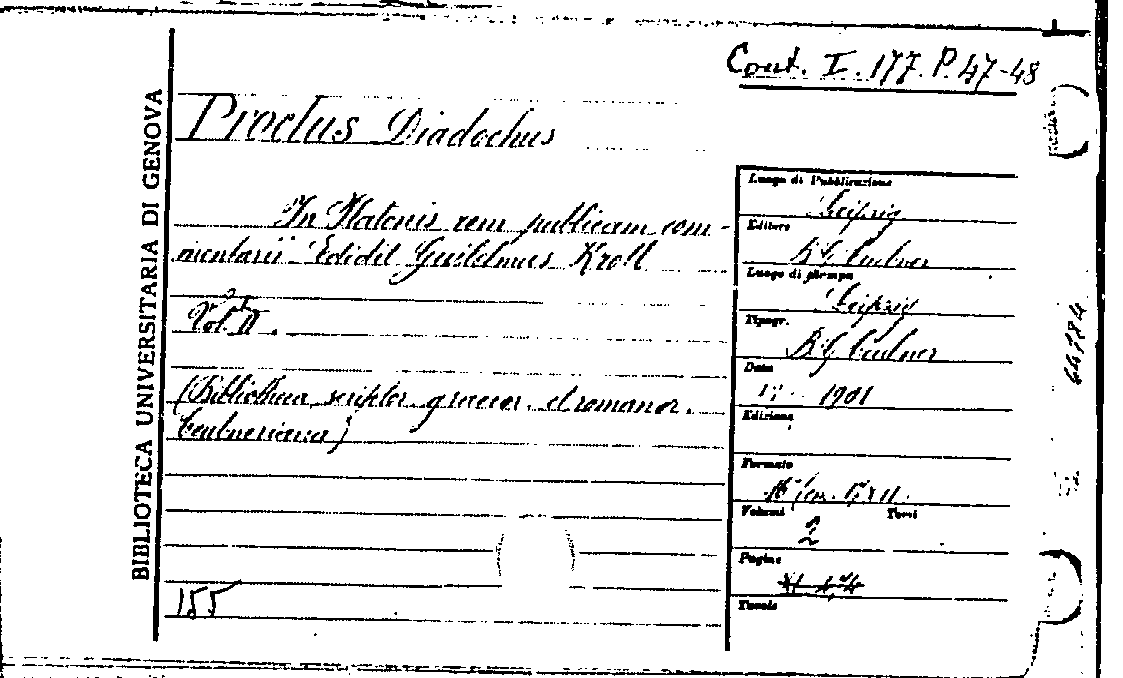 Cont. I. 177. P. 47-48
BIBLIOTECA UNIVERSITARIA DI GENOVA
Proclus Diadochus
In Platonis rem publicam com-
mentarii Edidit Guilelmus Kroll
Vol. II.
(Bibliotheca scriptor. graecor. et romanor.
teubneriana)
155
Luogo di Pubblicazione
Leipzig
Editore
B. G. Teubner
Luogo di stampa
Leipzig
Tipogr.
B. G. Teubner
Data
1901
Edizione
Formato
Volumi Tomi
2
Pagine
Tavole